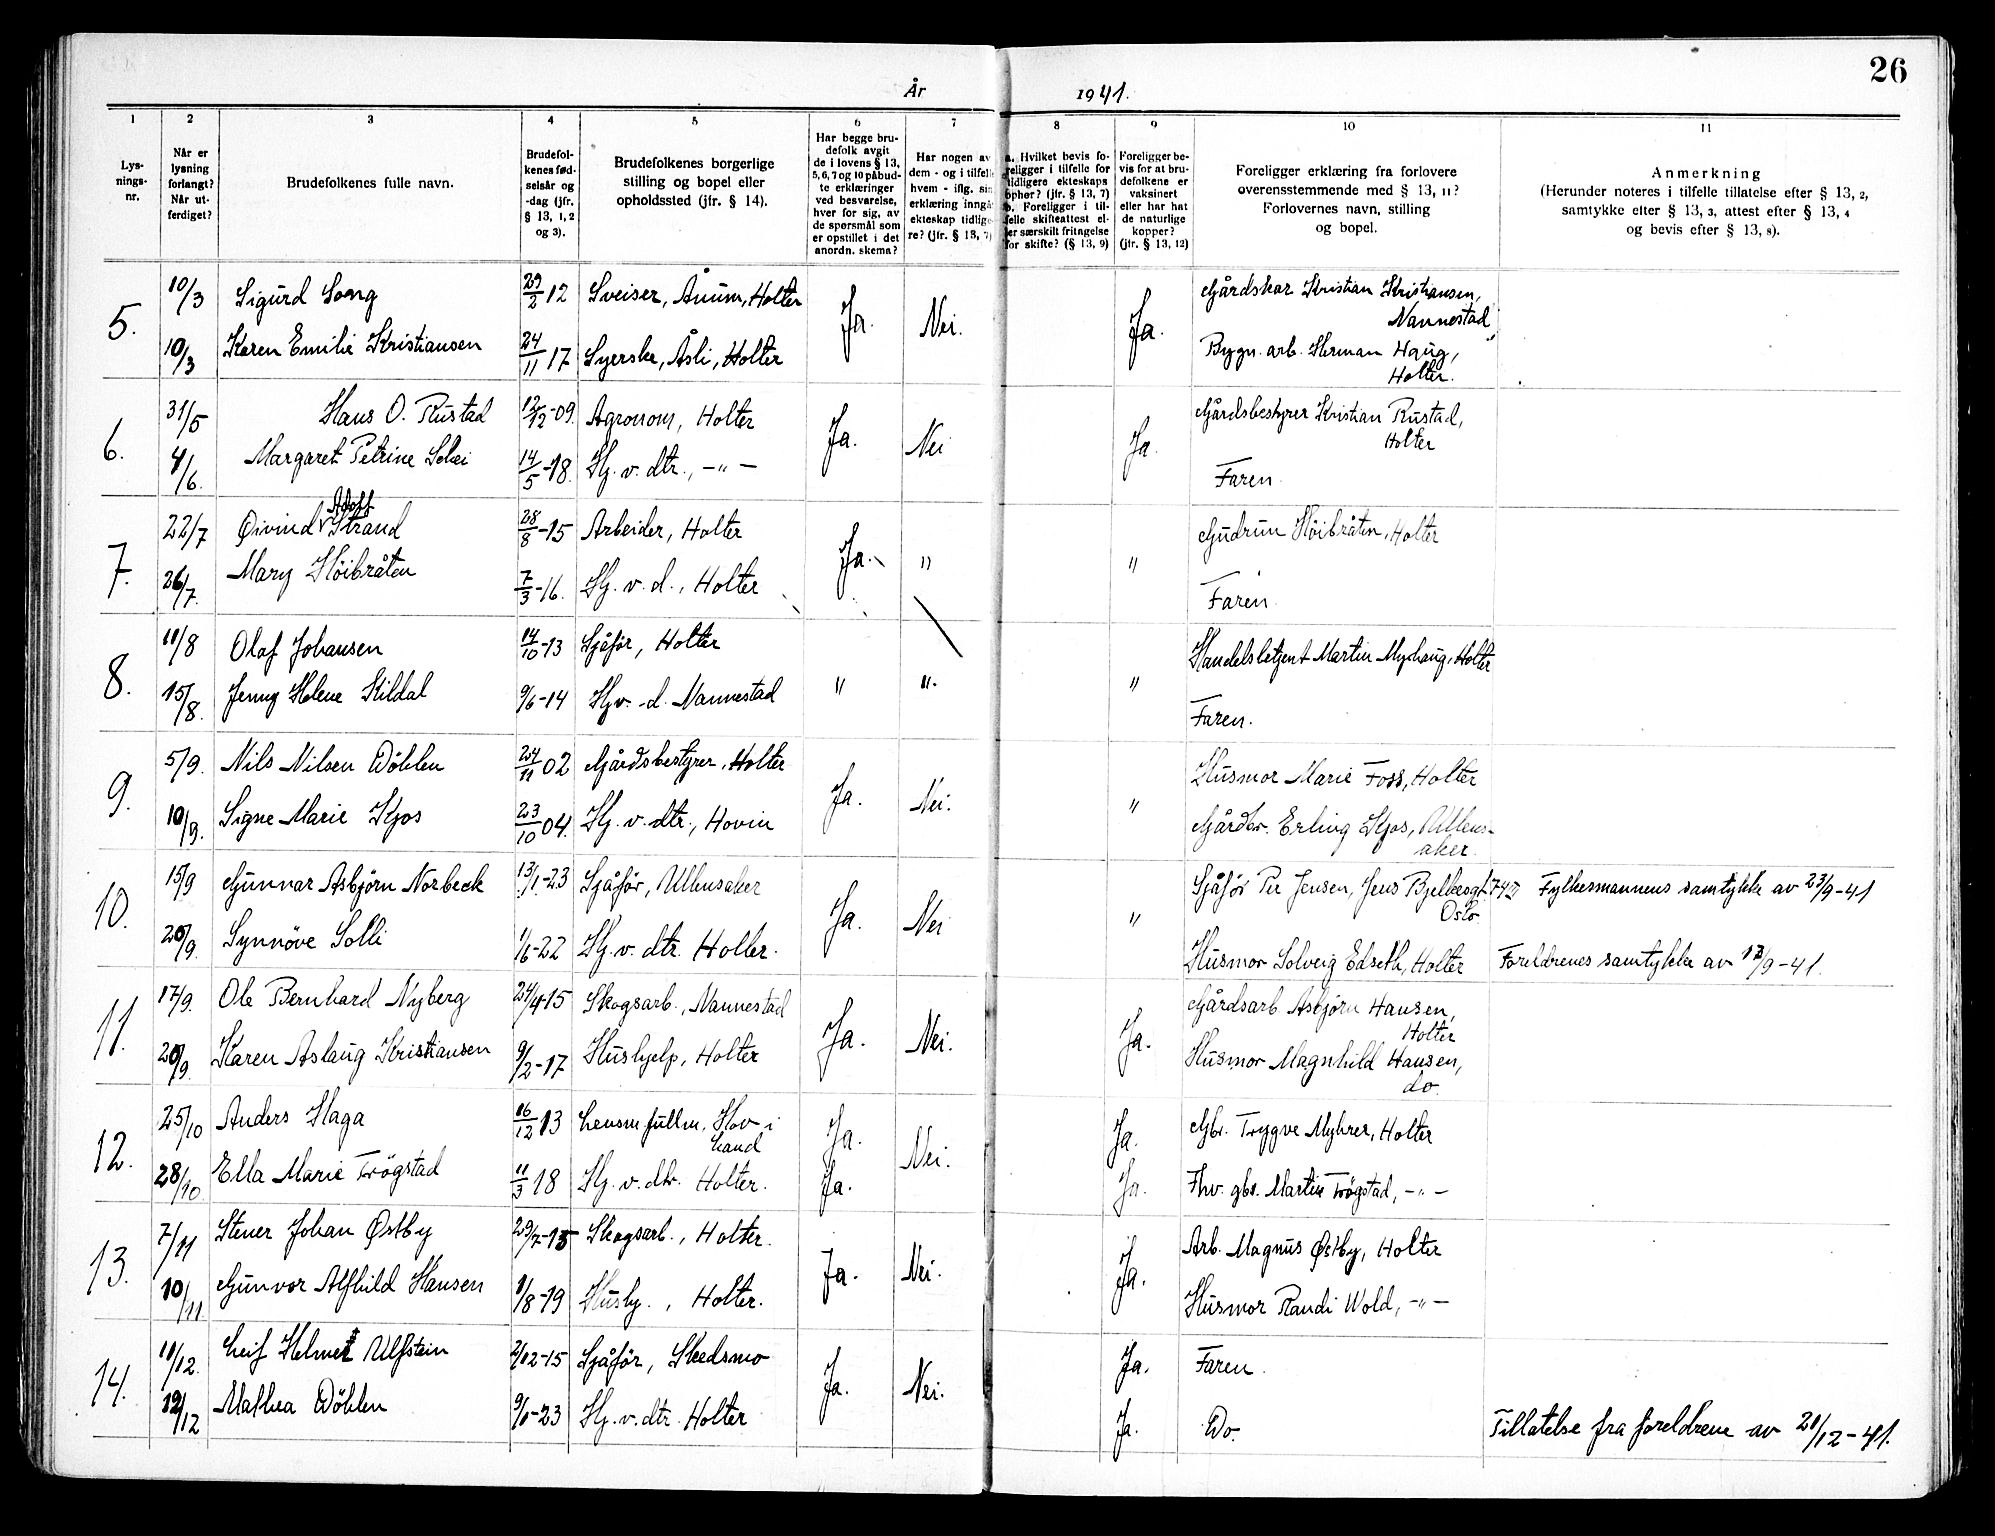 26
År 1941.
1 2 3 4 5 6 7 8 9 10 11
Lys-
nings-
nr.
Når er
lysning
forlangt?
Når ut-
ferdiget?
Brudefolkenes fulle navn.
Brudefol-
kenes fød-
selsår og
-dag (jfr.
§ 13, 1, 2
og 3).
Brudefolkenes borgerlige
stilling og bopel eller
opholdssted (jfr. § 14).
Har begge bru-
defolk avgit
de i lovens § 13,
5, 6, 7 og 10 påbud-
te erklæringer
ved besvarelse,
hver for sig, av
de spørsmål som
er opstillet i det
anordn. skema?
Har nogen av
dem - og i tilfelle
hvem - iflg. sin
erklæring inngå
ekteskap tidlige-
re? (jfr. § 13, 7)
a. Hvilket bevis fo-
religger i tilfelle for
tidligere ekteskaps
ophør? (jfr. § 13, 7)
b. Foreligger i til-
felle skifteattest el-
ler særskilt fritagelse
for skifte? (§ 13, 9)
Foreligger be-
vis for at bru-
defolkene er
vaksinert
eller har hat
de naturlige
kopper?
(jfr. § 13, 12)
Foreligger erklæring fra forlovere
overensstemmende med § 13, 11?
Forlovernes navn, stilling
og bopel.
Anmerkning
(Herunder noteres i tilfelle tillatelse efter § 13, 2,
samtykke efter § 13, 3, attest efter § 13, 4
og bevis efter § 13, 8).
5. 10/3 Sigurd Song 29/2 12 Sveiser, Ånum, Holter Ja. Nei. Ja. Gårdskar Kristian Kristiansen,
Nannestad
10/3 Karen Emilie Kristiansen 24/11 17 Syerske, Åsli, Holter Bygn. arb. Herman Haug,
Holter.
6. 31/5 Hans O. Rustad 12/12-09. Agronom, Holter Ja. Nei Ja. Gårdsbestyrer Kristian Rustad,
Holter
4/6. Margaret Petrine 14/5-18. Hj. v. dtr., -"- Faren.
7. 22/7 Øivind Adolf Strand 28/8-15 Arbeider, Holter Ja. " " Gudrun Höibråten, Holter
26/7. Mary Höibråten 7/3-16. Hj. v. d., Holter Faren.
8. 11/8 Olaf Johansen 14/10-13 Sjåför, Holter " ". " Handelsbetjent Martin Myrhaug, Holter
15/8. Jenny Helene Kildal 9/6-14 Hjv. d. Nannestad Faren.
9. 5/9. Nils Nilsen Döhlen 24/11 02 Gårdsbestyrer, Holter Ja. Nei. " Husmor Marie Foss, Holter
10/9. Signe Marie Kjos 23/10 04. Hj. v. dtr., Hovin Gårdbr. Erling Kjos, Ullens-
aker.
10. 15/9 Gunnar Asbjörn Norbeck 13/1-23 Sjåför, Ullensaker Ja. Nei " Sjåför Per Jensen, Jens Bjelkesgt. Fylkesmannens samtykke av 23/9-41
Oslo
20/9. Synnöve Solli 1/6-22 Hj. v. dtr. Holter. Husmor Solveig Edseth, Holter Foreldrenes samtykke av 12/9-41.
11. 17/9. Ole Bernhard Nyberg 24/4-15 Skogsarb., Nannestad Ja. Nei. Ja. Gårdsarb Asbjørn Hansen,
Holter
20/9. Karen Aslaug Kristiansen 9/2-17 Hushjelp, Holter Husmor Magnhild Hansen,
do.
12. 25/10 Anders Haga 16/12 13 Lensm fullm. Hov i
Land Ja. Nei. Ja. Gbr. Trygve Myhrer, Holter
28/10. Ella Marie Trögstad 11/3 18 Hj. v. dtr. Holter. Ja. Ja. Fhv. gbr. Martin Trögstad, -"-
13. 7/11 Stener Johan Østby 29/7-15 Skogsarb., Holter. Ja. Nei. Ja. Arb. Magnus Østby, Holter
10/11 Gunvor Alfhild Hansen 1/8-19 Hushj., Holter. Husmor Randi Wold, -"-
14. 11/12. Leif Helmer Ulfstein 2/12-15 Sjåför, Skedsmo Ja. Nei. Ja. Faren.
12/12 Mathea Döhlen 9/1-23 Hj. v. dtr. Holter Ja. Do. Tillatelse fra foreldrene av 21/12-41.